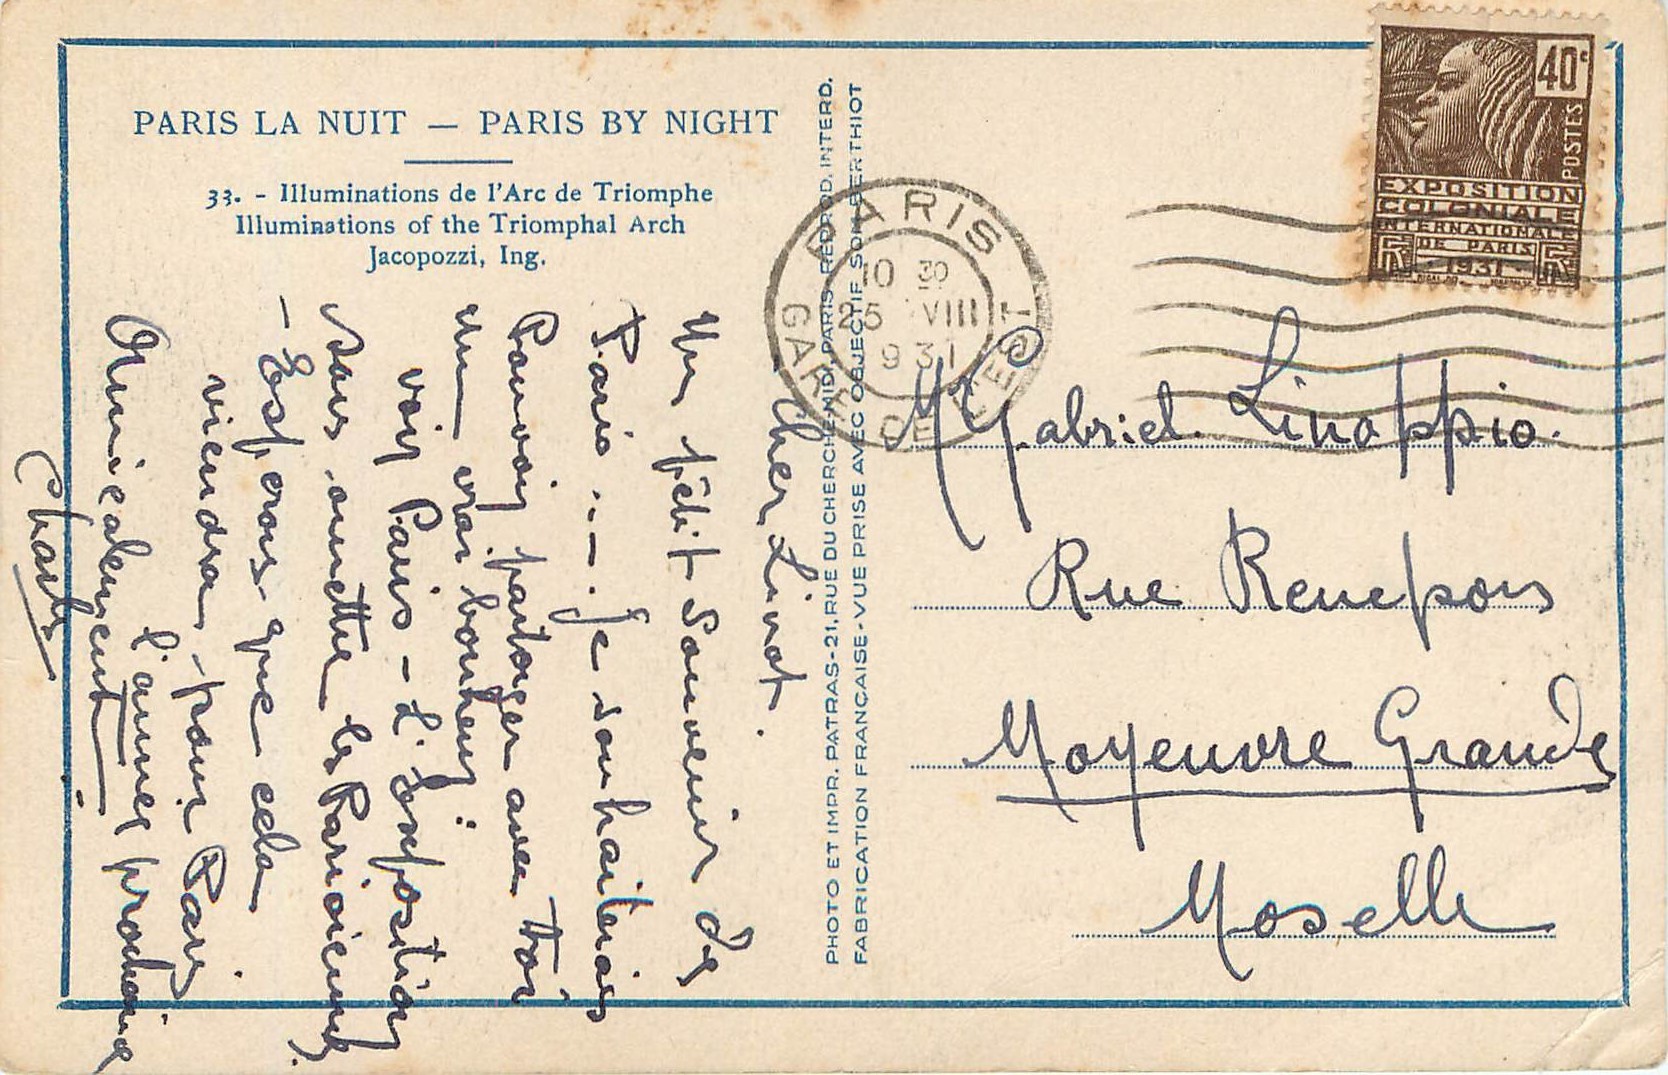 PARIS LA NUIT — PARIS BY NIGHT
33. - Illuminations de l'Arc de Triomphe
Illuminations of the Triomphal Arch
Jacopozzi, Ing.
Cher Linot.
Un pétit Souvenir de
Paris ... — . Je souhaiterais
Pouvoir partager avec toi
un vrai bonheur :
voir Paris – L'Exposition
sans omettre les Parisiennes.
– Esperons que cela
viendra, pour Paris.
l'année prochaine
Amicalement
Charles
PHOTO ET IMPR. PATRAS-21, RUE DU CHERCHE MIDI, PARIS-REPROD. INTERD.
FABRICATION FRANÇAISE - VUE PRISE AVEC OBJECTIF SOM BERTHIOT
PARIS
10 30
25 VIII
931
GARE DE L'EST
40c
POSTES
EXPOSITION
COLONIALE
INTERNATIONALE
DE PARIS
1931
RF RF
Mr Gabriel Linoppio.
Rue Renepons
Moyeuvre Grande
Moselle